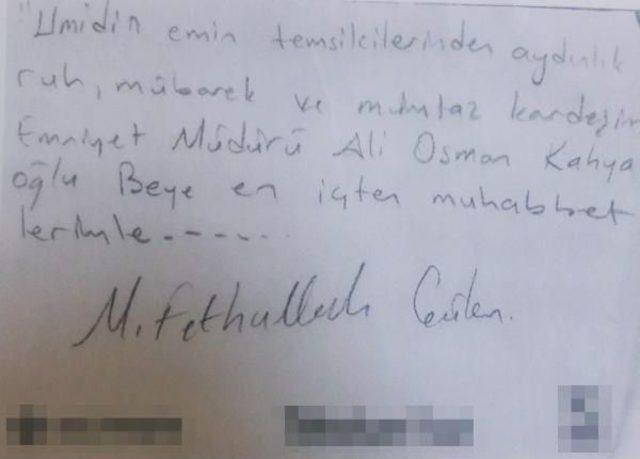 "Ümidin emin temsilcilerinden aydınlık
ruh, mübarek ve mümtaz kardeşim
Emniyet Müdürü Ali Osman Kahya
oğlu Beye en içten muhabbet
lerimle-.-.-...
M. Fethullah Gülen.